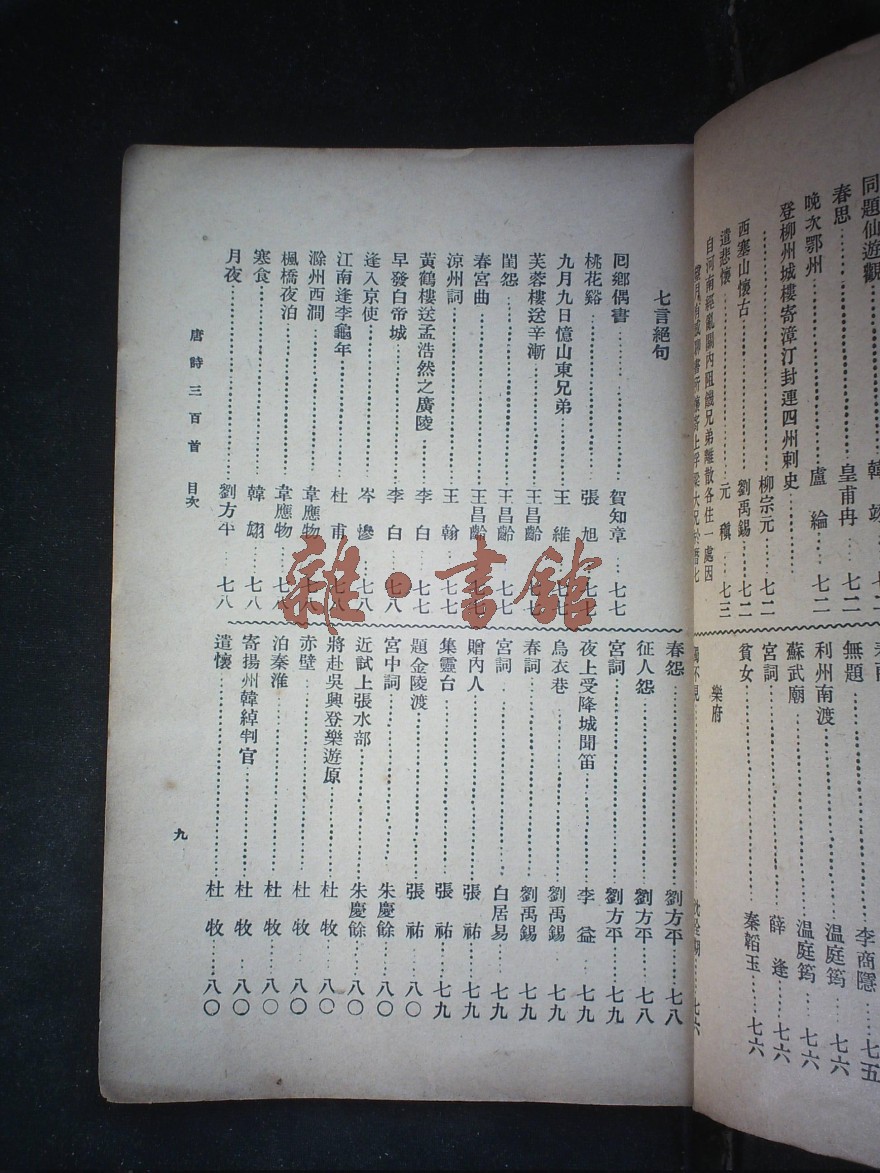 同題仙遊觀……韓翃……七二
春思……皇甫冉…七二
晚次鄂州……盧綸…七二
登柳州城樓寄漳汀封連四州刺史
……柳宗元…七二
西塞山懷古……劉禹錫…七二
遣悲懷……元稹…七三
自河南經亂關內阻饑兄弟離散各住一處因
無題……李商隱…七五
利州南渡……温庭筠…七六
蘇武廟……温庭筠…七六
宮詞……薛逢…七六
貧女……秦韜玉…七六
樂府
不見……七六
七言絕句
囘鄉偶書……賀知章…七七
桃花谿……張旭…七七
九月九日憶山東兄弟……王維…七七
芙蓉樓送辛漸……王昌齡…七七
閨怨……王昌齡…七七
春宮曲……王昌齡…七七
涼州詞……王翰…七七
黃鶴樓送孟浩然之廣陵……李白…七七
早發白帝城……李白…七八
逢入京使……岑慘…七八
江南逢李龜年……杜甫…七八
滁州西澗……韋應物…七八
楓橋夜泊……韋應物…七八
寒食……韓翃…七八
月夜……劉方平…七八
春怨……劉方平…七八
征人怨……劉方平…七八
宮詞……劉方平…七九
夜上受降城聞笛……李益…七九
烏衣巷……劉禹錫…七九
春詞……劉禹錫…七九
宮詞……白居易…七九
贈內人……張祐…七九
集靈台……張祐…七九
題金陵渡……張祐…八〇
宮中詞……朱慶餘…八〇
近試上張水部……朱慶餘…八〇
將赴吳興登樂遊原……杜牧…八〇
赤壁……杜牧…八〇
泊秦淮……杜牧…八〇
寄揚州韓綽判官……杜牧…八〇
遣懷……杜牧…八〇
唐詩三百首 目次
九
雜·書館